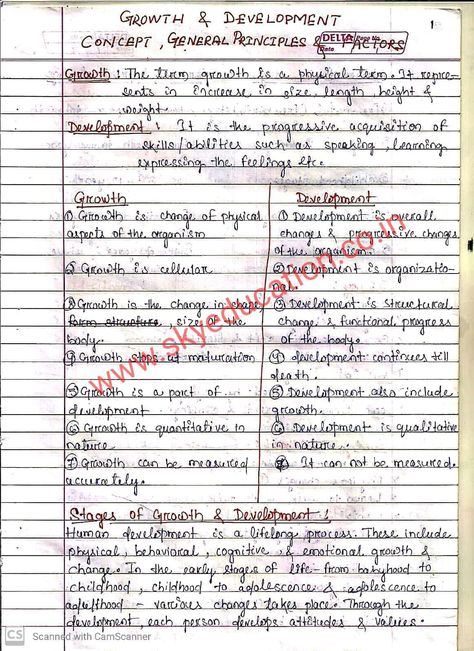 GROWTH & DEVELOPMENT
1
CONCEPT, GENERAL PRINCIPLES & FACTORS
DELTA Page No.
Date
Growth : The term growth is a physical term. It repre-
sents in increase in size, length, height &
weight.
Development : It is the progressive acquisition of
skills/abilities such as speaking, learning
expressing the feelings etc.
Growth
① Growth is change of physical
aspects of the organism
② Growth is cellular
③ Growth is the change in shape
form structure, size of the
body.
④ Growth stops at maturation
⑤ Growth is a part of
development
⑥ Growth is quantitative in
nature
⑦ Growth can be measured
accurately.
Development
① Development is overall
changes & progressive changes
of the organism.
② Development is organizatio-
nal.
③ Development is structural
change & functional progress
of the body.
④ development continues till
death.
⑤ Development also include
growth.
⑥ Development is qualitative
in nature.
⑦ It can not be measured.
Stages of Growth & Development :
Human development is a lifelong process. These include
physical, behavioral, cognitive & emotional growth &
change. In the early stages of life - from babyhood to
childhood, childhood to adolescence & adolescence to
adulthood - various changes takes place. Through the
development, each person develops attitudes & values.
www.skyeducation.co.in
CS Scanned with CamScanner